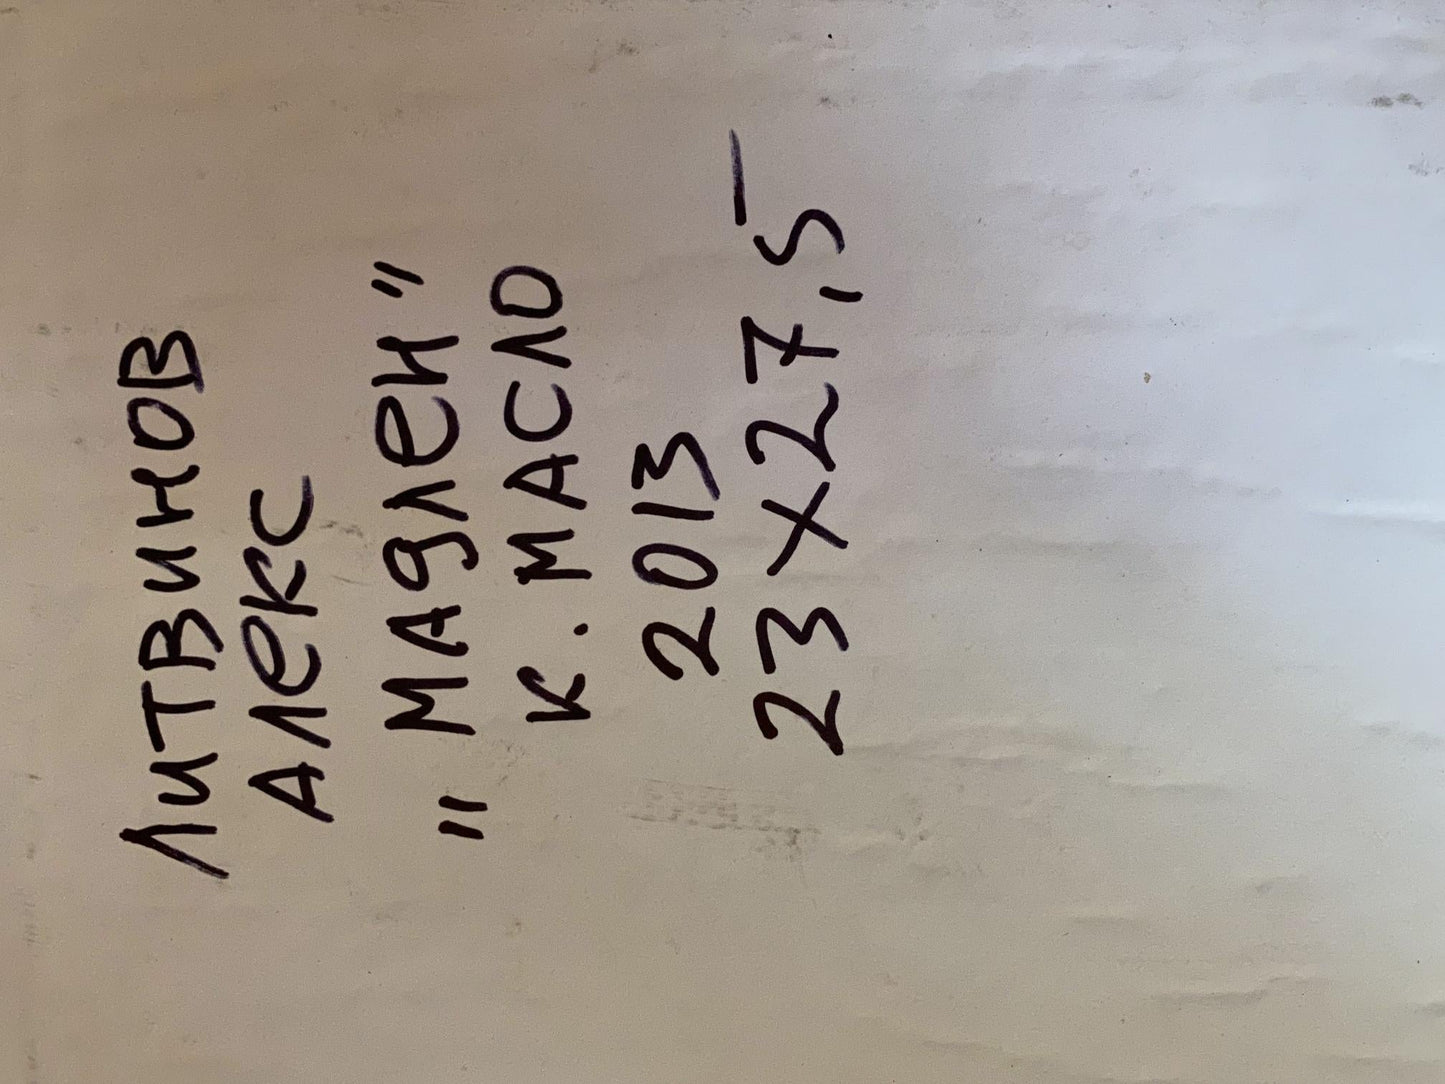 ЛИТВИНОВ
АЛЕКС
"МАДЛЕН"
К. МАСЛО
2013
23 X 27,5